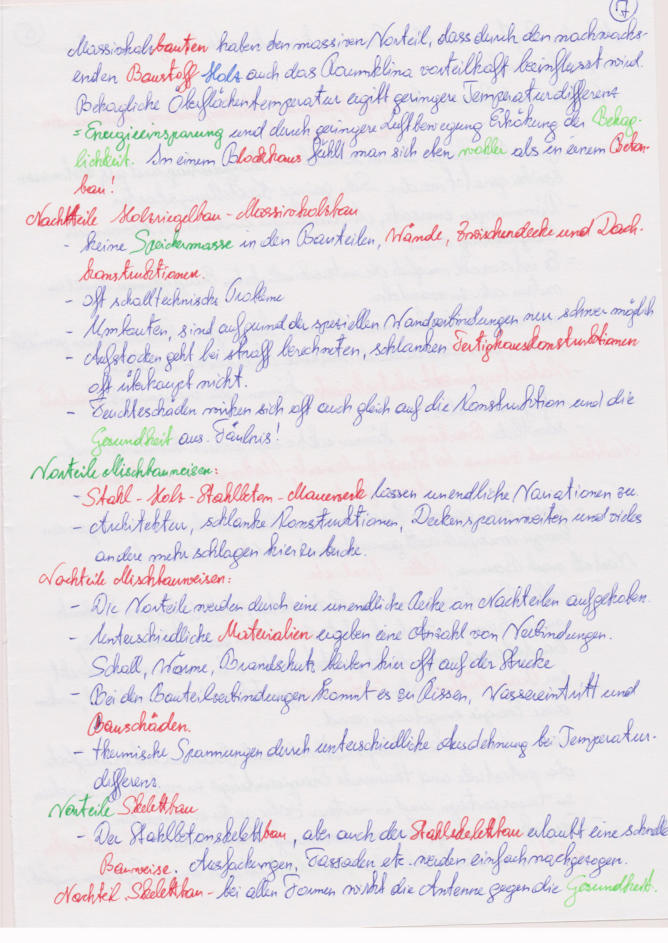 7
Massivholzbauten haben den massiven Vorteil, dass durch den nachwachs-
enden Baustoff Holz auch das Raumklima vorteilhaft beeinflusst wird.
Behagliche Oberflächentemperatur ergibt geringere Temperaturdifferenz
= Energieeinsparung und durch geringere Luftbewegung Erhöhung der Behag-
lichkeit. In einem Blockhaus fühlt man sich eben wohler als in einem Beton-
bau!
Nachteile Holzriegelbau - Massivholzbau
- keine Speichermasse in den Bauteilen, Wände, Zwischendecke und Dach-
konstruktionen.
- oft schalltechnische Probleme
- Umbauten, sind aufgrund der speziellen Wandverbindungen nur schwer möglich
- Aufstocken geht bei straff berechneten, schlanken Fertighauskonstruktionen
oft überhaupt nicht.
- Feuchteschäden wirken sich oft auch gleich auf die Konstruktion und die
Gesundheit aus. Fäulnis!
Vorteile Mischbauweisen:
- Stahl - Holz - Stahlbeton - Mauerwerk lassen unendliche Variationen zu.
- Architektur, schlanke Konstruktionen, Deckenspannweiten und vieles
andere mehr schlagen hier zu buche.
Nachteile Mischbauweisen:
- Die Vorteile werden durch eine unendliche Reihe an Nachteilen aufgehoben.
- Unterschiedliche Materialien ergeben eine Anzahl von Verbindungen.
Schall, Wärme, Brandschutz bleiben hier oft auf der Strecke
- Bei den Bauteilverbindungen kommt es zu Rissen, Wassereintritt und
Bauschäden.
- thermische Spannungen durch unterschiedliche Ausdehnung bei Temperatur-
differenz.
Vorteile Skelettbau
- Der Stahlbetonskelettbau, aber auch der Stahlskelettbau erlaubt eine schnelle
Bauweise. Ausfachungen, Fassaden etc. werden einfach nachgezogen.
Nachteil Skelettbau - bei allen Formen wirkt die Antenne gegen die Gesundheit.